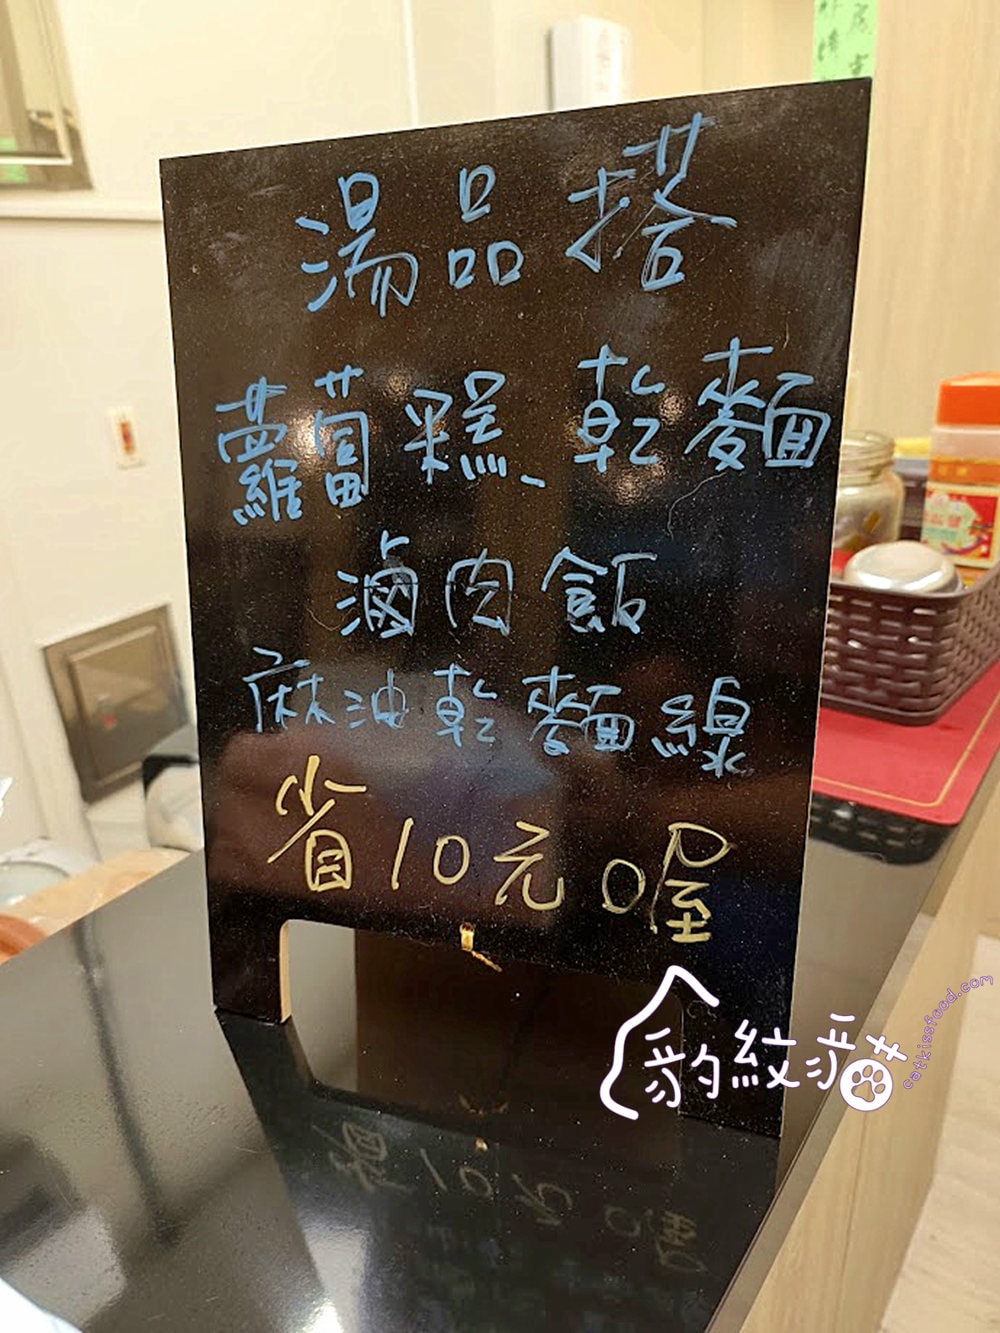 湯品搭
蘿蔔糕、乾麵
滷肉飯
麻油乾麵線
省10元喔
豹紋貓
catkissfood.com